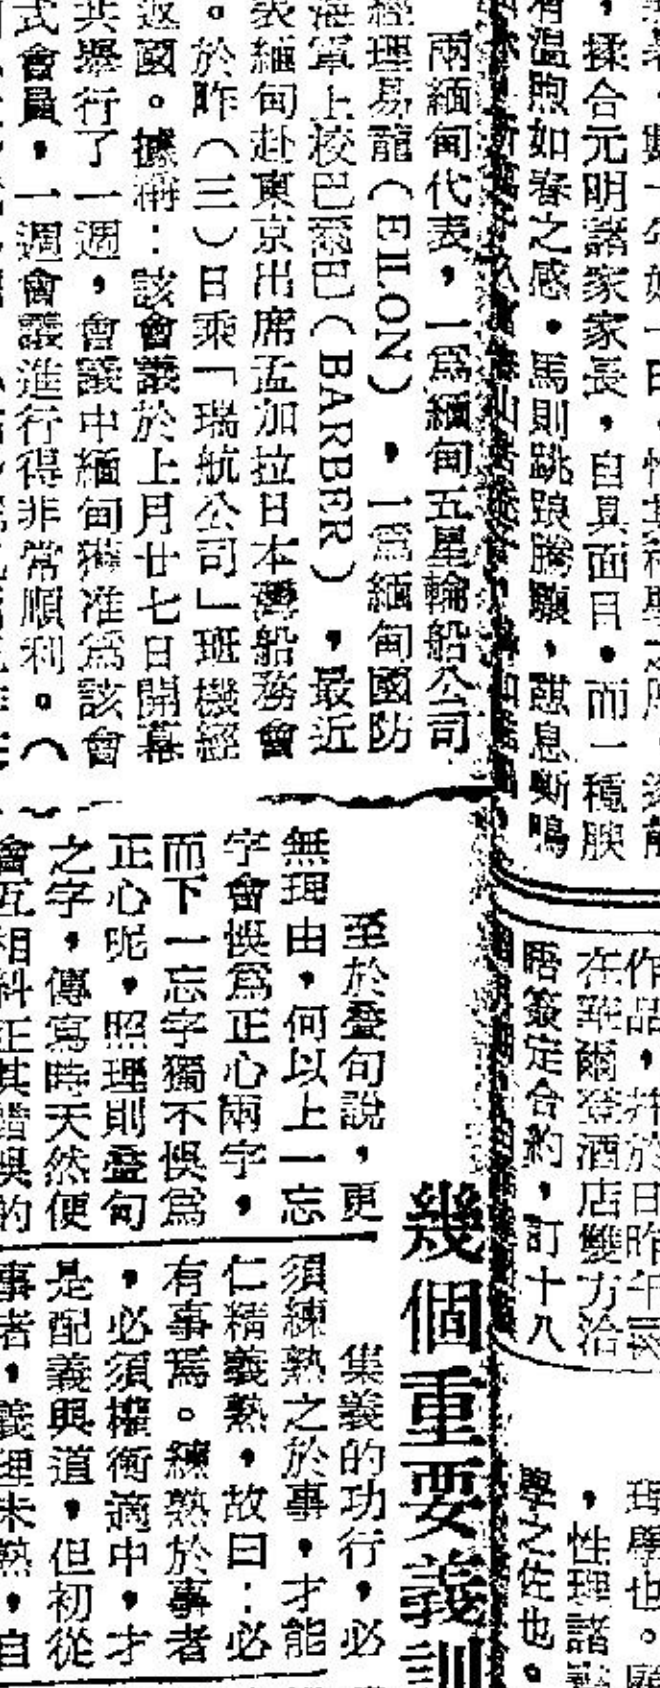 ，揉合元明諸家家長，自具面目，而一種腴
有温煦如春之感，馬則跳踉騰驤，
兩緬甸代表，一爲緬甸五星輪船公司
經理易龍（EILON），一爲緬甸國防
海軍上校巴爾巴（BARBER），最近
表緬甸赴東京出席孟加拉日本灣船務會
。於昨（三）日乘「瑞航公司」班機經
返國。據稱：該會議於上月廿七日開幕
共舉行了一週，會議中緬甸獲准爲該會
式會員，一週會議進行得非常順利。（
作品，并於日昨午
在華爾登酒店雙方洽
簽定合約，訂十八
幾個重要義訓
至於疊句說，更
無理由，何以上一忘
字會悞爲正心兩字，
而下一忘字獨不悞爲
正心呢，照理則疊句
之字，傳寫時天然便
會互相糾正其錯悞的
理學也。
，性理諸
學之佐也。
集義的功行，必
須練熟之於事，才能
仁精義熟，故曰：必
有事焉。練熟於事者
，必須權衡適中，才
是配義與道，但初從
事者，義理未熟，自